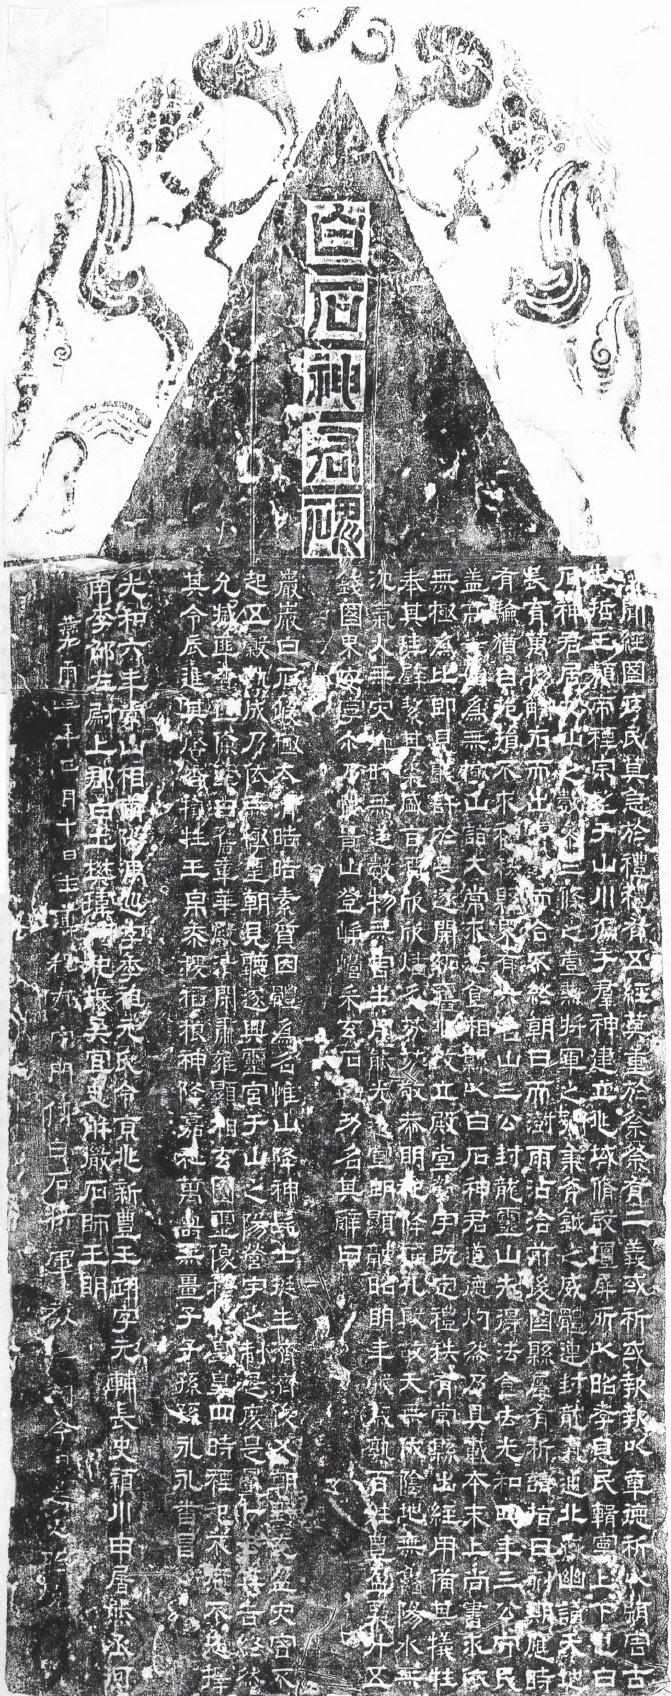 白石神君碑
聞經國序民莫急於禮禮有五經莫重於祭祭有二義或祈或報報以章德祈以弭害古
先哲王類帝禋宗望于山川徧于羣神建立兆域脩設壇屏所以昭孝息民輯寧上下也白
石神君居九山之數參三條之壹兼將軍之號秉斧鉞之威體連封龍氣通北嶽幽讚天地
長育萬物觸石而出膚寸而合不終朝日而澍雨沾洽前後國縣屢有祈請指日刻期應時
有驗猶自挹損不求禮秩縣界有六名山三公封龍靈山先得法食去光和四年三公守民
蓋高等始為無極山詣大常求法食相縣以白石神君道德灼然乃具載本末上尚書求依
無極為比即見聽許於是遂開拓舊兆改立殿堂營宇既定禮秩有常縣出經用備其犧牲
奉其珪璧絜其粢盛旨酒欣欣燔炙芬芬敬恭明祀降福孔殷故天無伏陰地無鮮陽水無
沉氣火無災燀時無逆數物無害生用能光遠宣朗顯融昭明年穀歲熟百姓豐盈粟升五
錢國界安寧爾乃陟景山登崢嶸采玄石勒功名其辭曰
巖巖白石峻極太清皓皓素質因體為名惟山降神髦士挺生濟濟俊乂朝野充盈災害不
起五穀熟成乃依無極聖朝見聽遂興靈宮于山之陽營宇之制是度是量卜云其吉終然
允臧匪奢匪儉率由舊章華殿清閑肅雍顯相玄圖靈像穆穆皇皇四時禋祀不愆不忘擇
其令辰進其馨香犧牲玉帛黍稷稻粮神降嘉祉萬壽無畺子子孫孫永永番昌
光和六年常山相南陽馮巡字季祖元氏令京兆新豐王翊字元輔長史潁川申屠熊丞河
南李邵左尉上郡白土樊瑋祠祀掾吳宜史解微石師王明
燕元璽三年正月十日主簿程疵家門傳白石將軍教